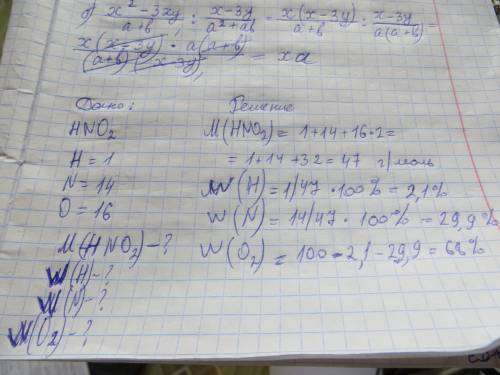 б) x² - 3xy / a+b : x-3y / a²+ab = x(x-3y) / a+b : x-3y / a(a+b) =
x(x-3y) · a(a+b) / (a+b)(x-3y) = xa
Дано:
HNO2
H = 1
N = 14
O = 16
M(HNO2) - ?
W(H) - ?
W(N) - ?
W(O2) - ?
Решение
M(HNO2) = 1+14+16·2=
= 1+14+32 = 47 г/моль
W(H) = 1/47 · 100% = 2,1%
W(N) = 14/47 · 100% = 29,9%
W(O2) = 100-2,1-29,9 = 68%